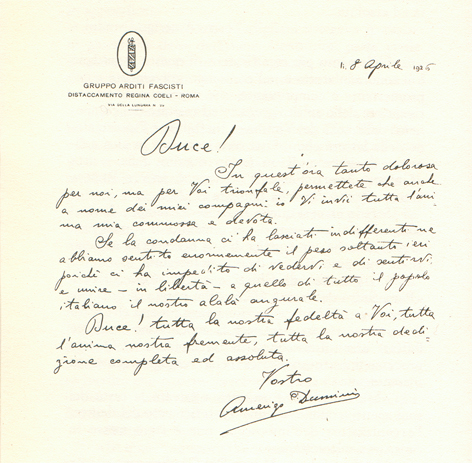 li 8 Aprile 1926
GRUPPO ARDITI FASCISTI
DISTACCAMENTO REGINA COELI - ROMA
VIA DELLA LUNGARA N.
Duce!
In quest'ora tanto dolorosa
per noi, ma per Voi trionfale, permettete che anche
a nome dei miei compagni io Vi invii tutta l'ani-
ma mia commossa e devota.
Se la condanna ci ha lasciati indifferenti ne
abbiamo sentito enormemente il peso soltanto ieri
poichè ci ha impedito di vedervi e di sentirvi
e unire - in libertà - a quello di tutto il popolo
italiano il nostro alalà augurale.
Duce! tutta la nostra fedeltà a Voi, tutta
l'anima nostra fremente, tutta la nostra dedi-
zione completa ed assoluta.
Vostro
Amerigo Dumini